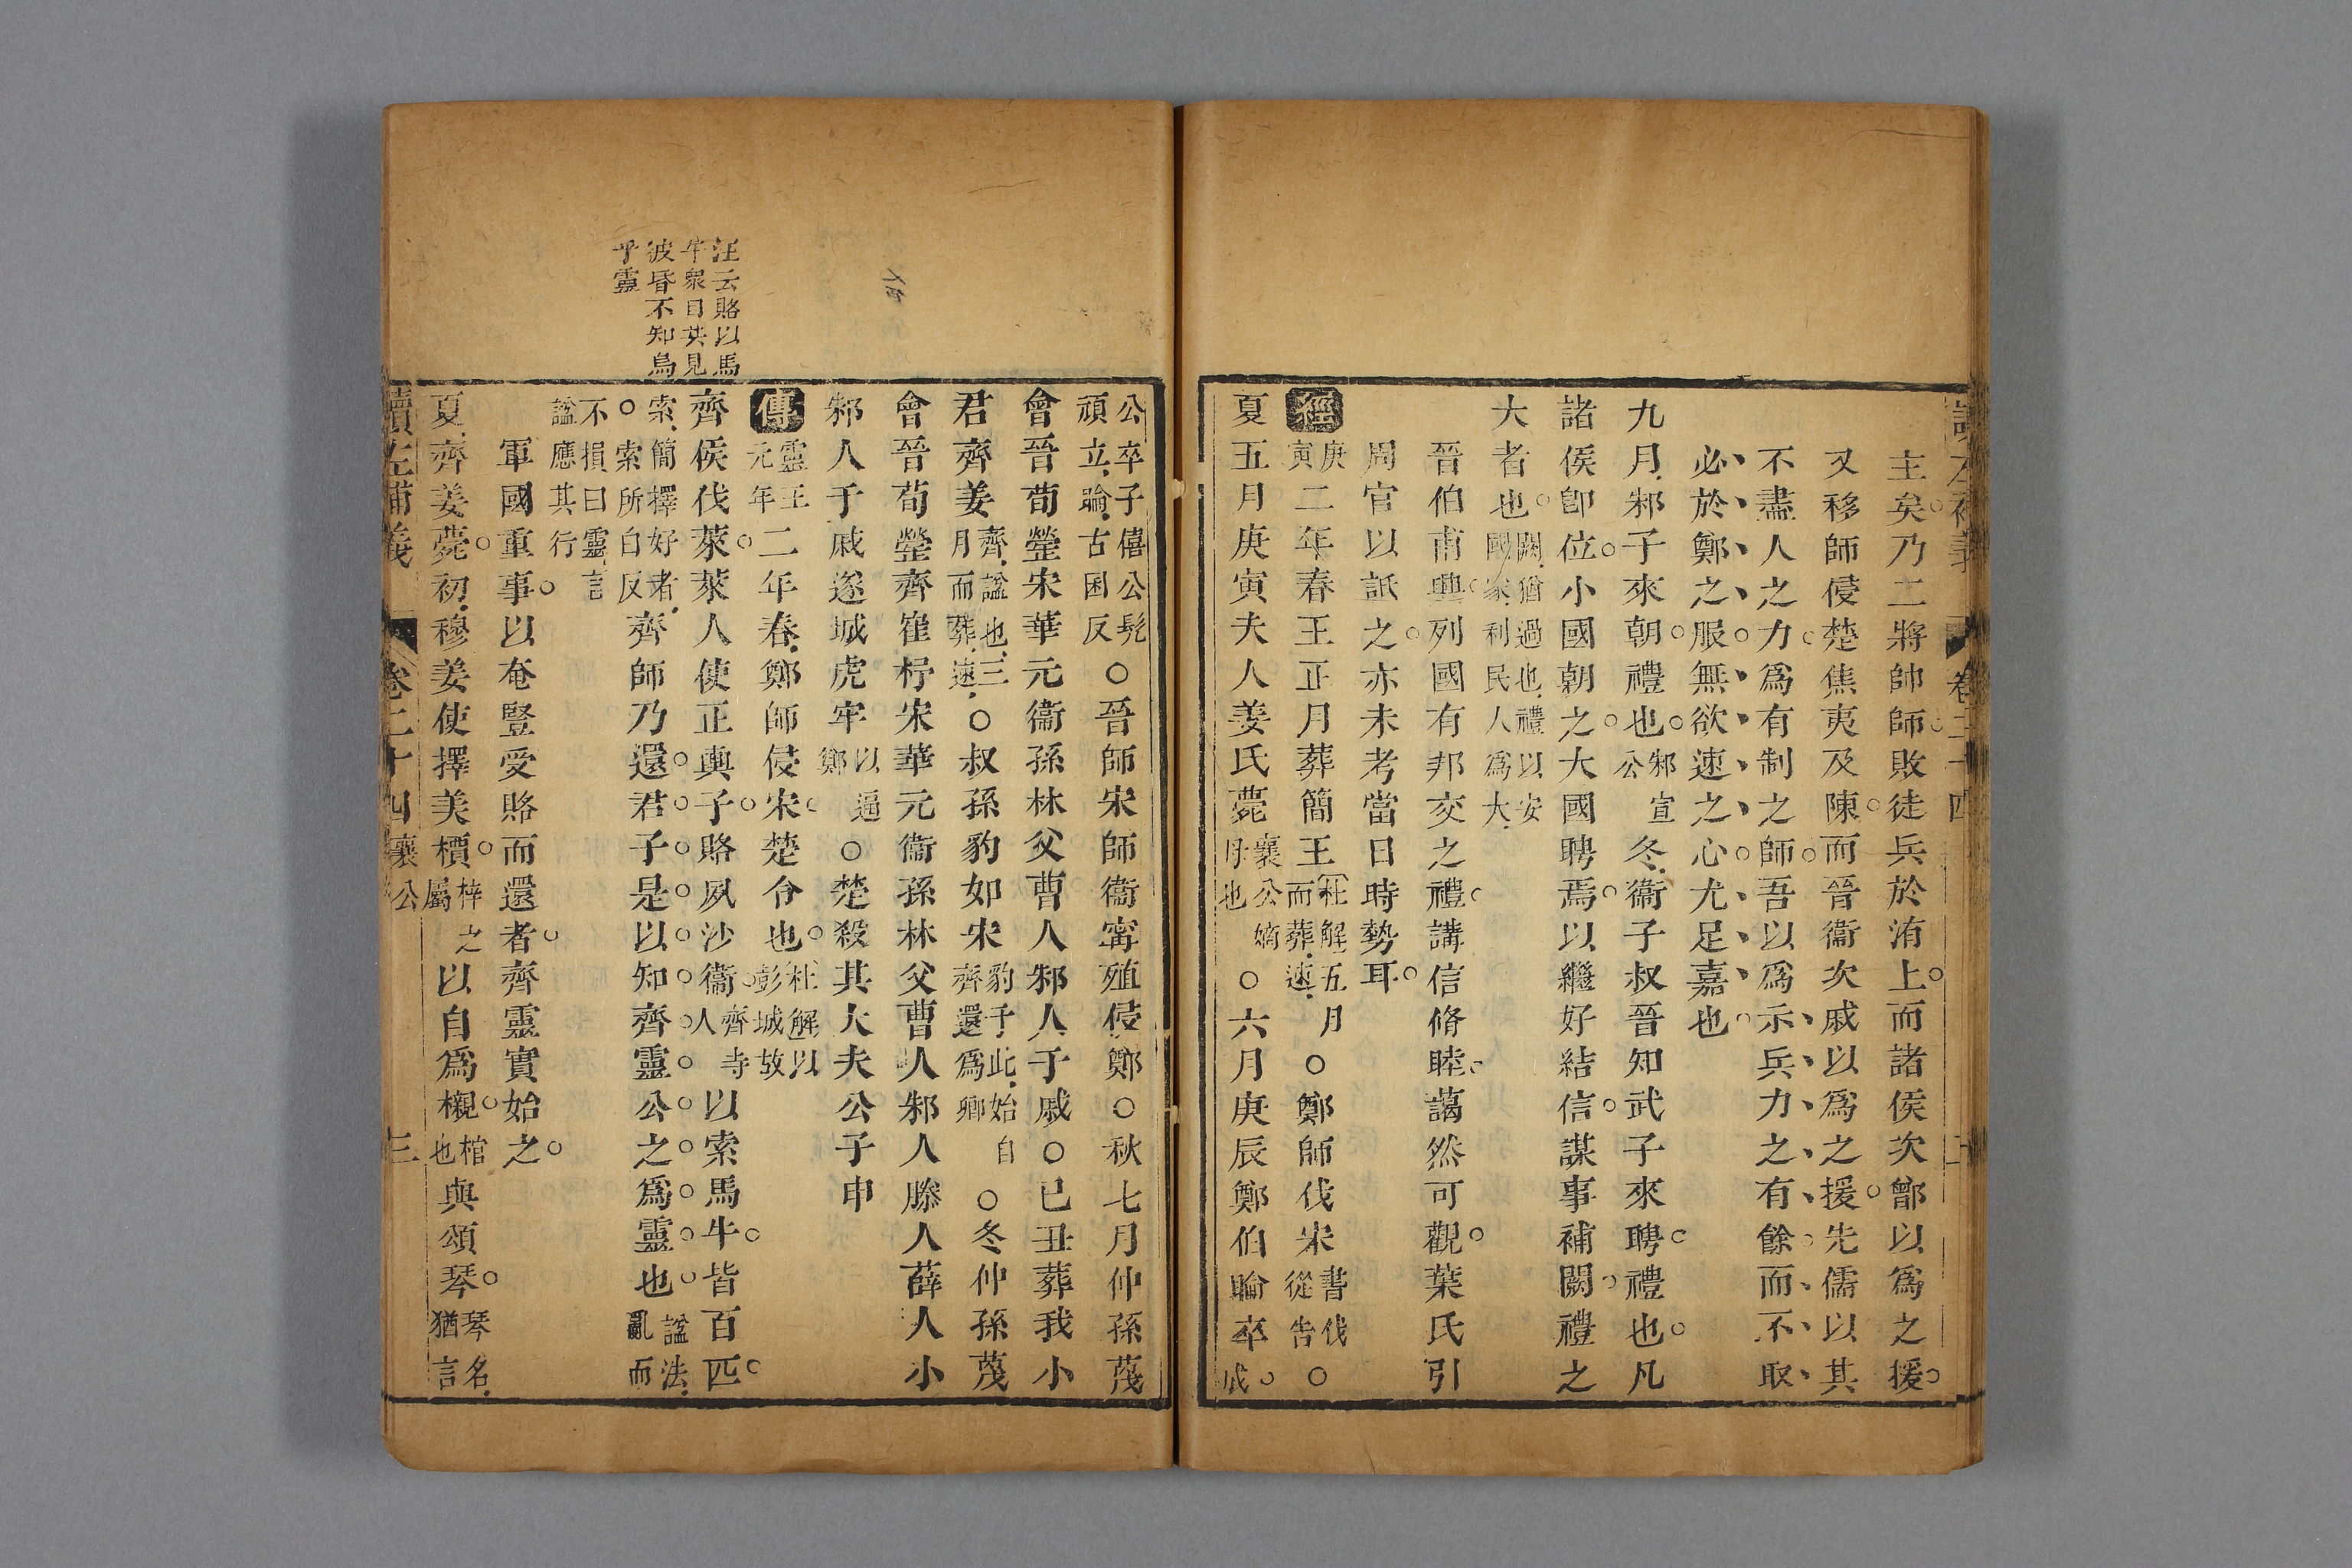 主矣乃二將帥師敗徒兵於洧上而諸侯次鄫以爲之援
又移師侵楚焦夷及陳而晉衞次戚以爲之援先儒以其
不盡人之力爲有制之師吾以爲示兵力之有餘而不取
必於鄭之服無欲速之心尤足嘉也
九月邾子來朝禮也邾宣公冬衞子叔晉知武子來聘禮也凡
諸侯卽位小國朝之大國聘焉以繼好結信謀事補闕禮之
大者也闕猶過也禮以安國家利民人爲大
晉伯甫興列國有邦交之禮講信脩睦藹然可觀葉氏引
周官以詆之亦未考當日時勢耳
經庚寅二年春王正月葬簡王杜解五月而葬速○鄭師伐宋書伐從告○
夏五月庚寅夫人姜氏薨襄公嫡母也○六月庚辰鄭伯睔卒成
公卒子僖公髡頑立睔古困反○晉師宋師衞甯殖侵鄭○秋七月仲孫蔑
會晉荀罃宋華元衞孫林父曹人邾人于戚○己丑葬我小
君齊姜齊諡也三月而葬速○叔孫豹如宋豹于此始自齊還爲卿○冬仲孫蔑
會晉荀罃齊崔杼宋華元衞孫林父曹人邾人滕人薛人小
邾人于戚遂城虎牢以逼鄭○楚殺其大夫公子申
傳靈王元年二年春鄭師侵宋楚令也杜解以彭城故
齊侯伐萊萊人使正輿子賂夙沙衞齊寺人以索馬牛皆百匹
索簡擇好者○索所白反齊師乃還君子是以知齊靈公之爲靈也諡法亂而
不損曰靈言諡應其行
軍國重事以奄豎受賂而還者齊靈實始之
夏齊姜薨初穆姜使擇美檟梓之屬以自爲櫬棺也與頌琴琴名猶言
讀左補義 卷二十四 襄公 三
汪云賂以馬
牛眾目共見
彼昏不知烏
乎靈